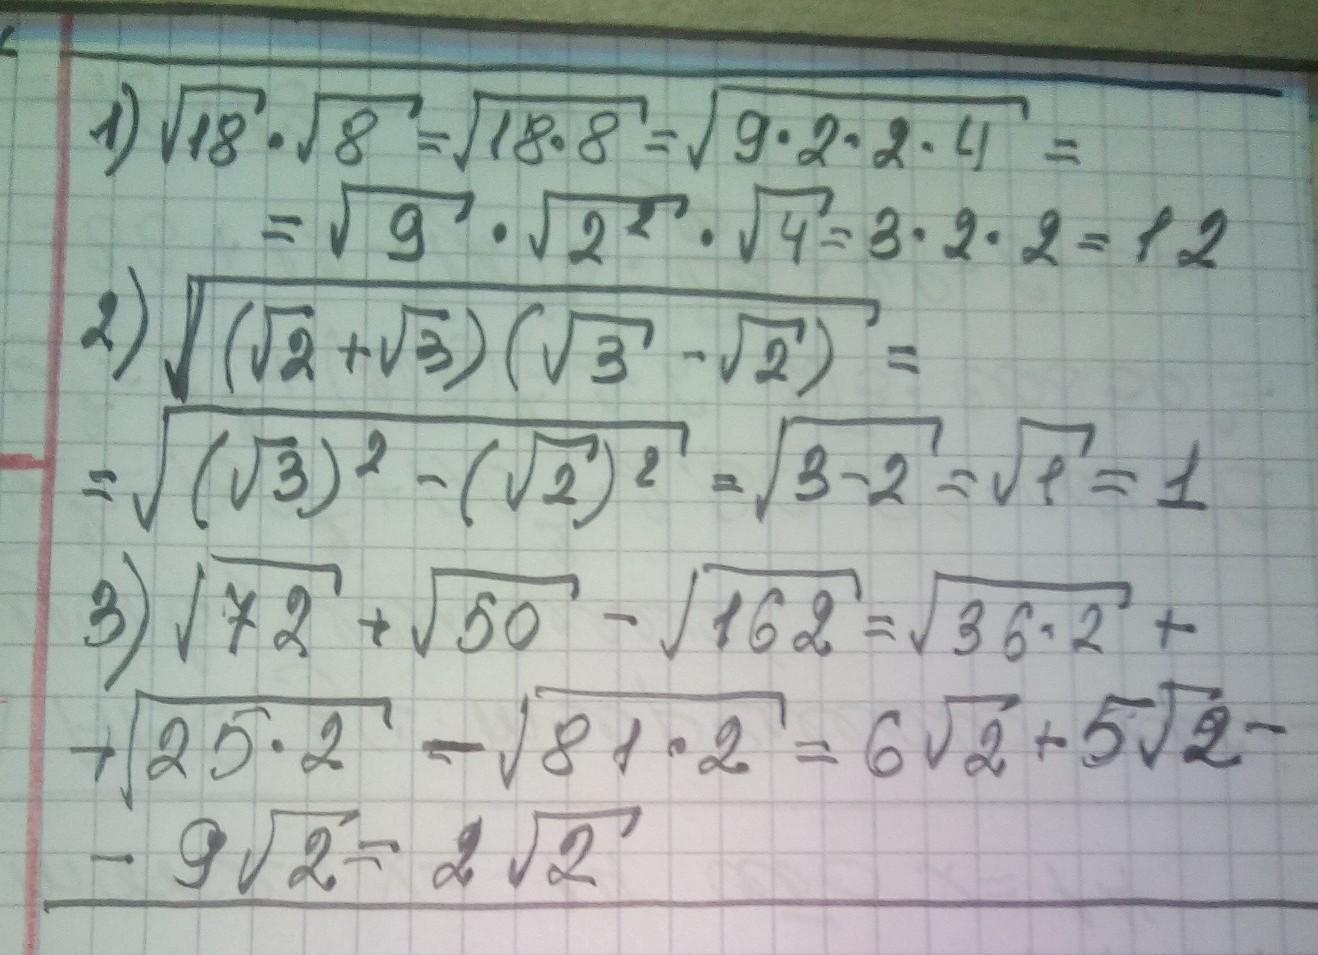 1) √18 · √8 = √18·8 = √9·2·2·4 =
= √9 · √2² · √4 = 3·2·2 = 12
2) √(√2 + √3)(√3 - √2) =
= √(√3)² - (√2)² = √3-2 = √1 = 1
3) √72 + √50 - √162 = √36·2 +
+ √25·2 - √81·2 = 6√2 + 5√2 -
- 9√2 = 2√2